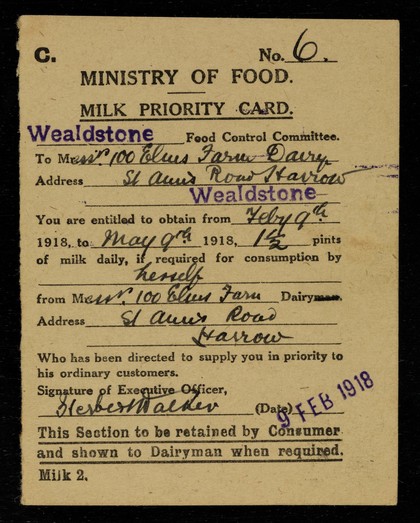 C. No. 6.
MINISTRY OF FOOD.
MILK PRIORITY CARD.
Wealdstone Food Control Committee.
To Messrs. 100 Elms Farm Dairy
Address St Ann's Road Harrow
Wealdstone
You are entitled to obtain from Feby 9th
1918, to May 9th 1918, 1½ pints
of milk daily, if required for consumption by
herself
from Messrs. 100 Elms Farm Dairyman.
Address St Ann's Road
Harrow
Who has been directed to supply you in priority to
his ordinary customers.
Signature of Executive Officer,
Herbert Walker (Date) 9 FEB 1918
This Section to be retained by Consumer
and shown to Dairyman when required.
Milk 2.